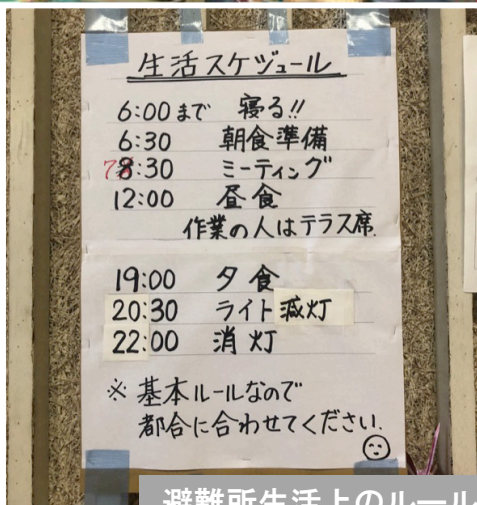 生活スケジュール
6:00まで 寝る!!
6:30 朝食準備
7:30 ミーティング
12:00 昼食
作業の人はテラス席.
19:00 夕食
20:30 ライト減灯
22:00 消灯
※ 基本ルールなので
都合に合わせてください.
避難所生活上のルール